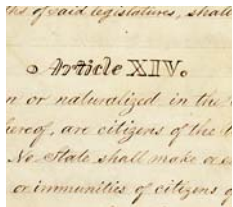 ths of said legislatures, shall
Article XIV.
n or naturalized in the
hereof, are citizens of the
No State shall make or
or immunities of citizens